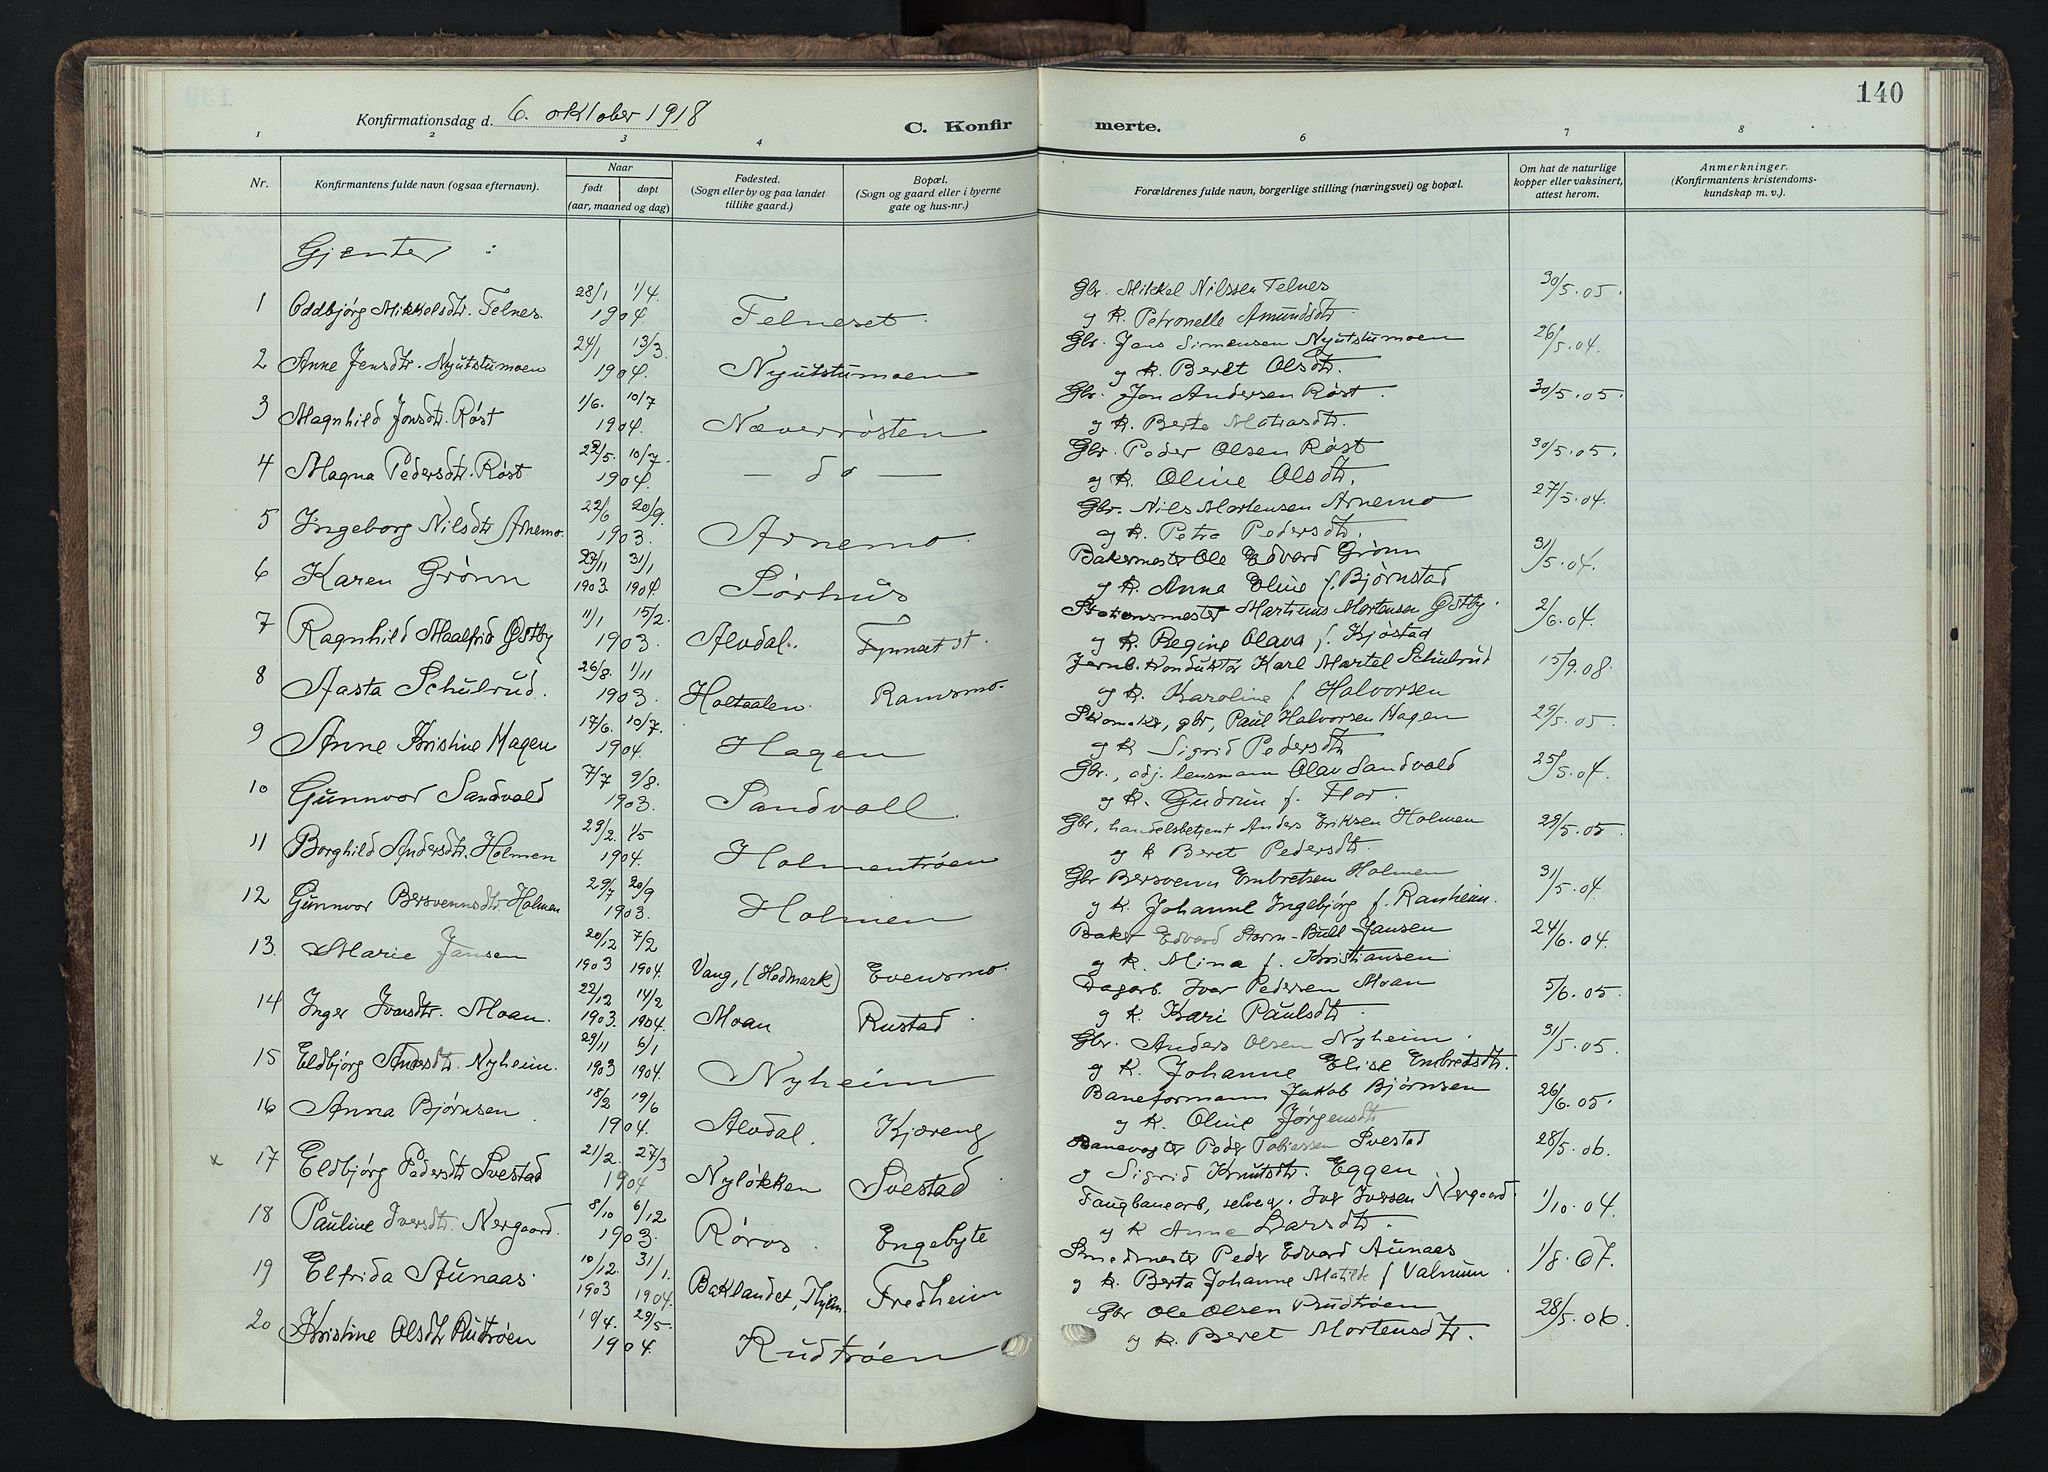 140
Konfirmationsdag d. 6. oktober 1918
C. Konfirmerte.
1 2 3 4 5 6 7 8
Nr. | Konfirmantens fulde navn (ogsaa efternavn). | Naar født døpt (aar, maaned og dag) | Fødested. (Sogn eller by og paa landet tillike gaard.) | Bopæl. (Sogn og gaard eller i byerne gate og hus-nr.) | Forældrenes fulde navn, borgerlige stilling (næringsvei) og bopæl. | Om hat de naturlige kopper eller vaksinert, attest herom. | Anmerkninger. (Konfirmantens kristendomskundskap m. v.).
Gjenter :
1 Oddbjørg Mikkelsdtr. Telnes. 28/1 1/4. 1904 Telneset. Gbr. Mikkel Nilssen Telnes 30/5.05.
og k. Petronelle Amundsdtr.
2 Anne Jensdtr. Nyutstumoen 24/1 13/3. 1904. Nyutstumoen Gbr. Jens Simensen Nyutstumoen 26/5.04.
og k. Beret Olsdtr.
3 Magnhild Jonsdtr. Røst 1/6. 10/7 1904. Næverrøsten Gbr. Jon Andersen Røst. 30/5.05.
og k. Berte Matiasdtr.
4 Magna Pedersdtr. Røst 22/5. 10/7. 1904. — do — Gbr. Peder Olsen Røst 30/5.05.
og k. Oline Olsdtr.
5 Ingeborg Nilsdtr Arnemo. 22/6 20/9. 1903. Arnemo. Gbr. Nils Mortensen Arnemo 27/5.04.
og k. Petra Pedersdtr.
6 Karen Grønn 27/11 1903 31/1 1904 Sørhus Bakermester Ole Edvard Grønn 31/5.04.
og k. Anna Eline f. Bjørnstad
7 Ragnhild Maalfrid Østby 11/1 15/2. 1903. Alvdal. Tynset st. Stationsmester Martinus Mortensen Østby. 2/6.04.
og k. Regine Olava f. Kjøstad
8 Aasta Schulrud. 26/8. 1/11 1903. Holtaalen. Ramsmo. Jernb. konduktør Karl Martel Schulrud 15/9.08.
og k. Karoline f Halvorsen
9 Anne Kristine Hagen 17/6. 10/7. 1904. Hagen Skomaker, gbr, Paul Halvorsen Hagen 29/5.05.
og k Sigrid Pedersdtr
10 Gunnvor Sandvold 7/7 9/8. 1903. Sandvoll. Gbr., adj. lensmann Olav Sandvold 25/5.04.
og k. Gudrun f. Flor.
11 Borghild Andersdtr. Holmen 29/2. 1/5 1904. Holmentrøen Gbr, handelsbetjent Anders Eriksen Holmen 29/5.05.
og k Beret Pedersdtr.
12 Gunnvor Bersvennsdtr. Holmen 29/7 20/9 1903. Holmen Gbr Bersvenn Embretsen Holmen 31/5.04.
og k. Johanne Ingebjørg f. Ranheim.
13. Marie Jansen 20/12 1903 7/2 1904. Vang, (Hedmark) Evensmo. Baker Edvard Storm-Bull Jansen 24/6.04.
og k. Mina f. Kristiansen
14 Inger Ivarsdtr. Moan. 22/12 1903. 14/2 1904. Moan Rustad Dagarb. Ivar Pedersen Moan 5/6.05.
og k. Kari Paulsdtr.
15 Eldbjørg Andersdtr. Nyheim. 29/11 1903 6/1 1904. Nyheim Gbr. Anders Olsen Nyheim. 31/5.05.
og k. Johanne Elise Embretsdtr.
16 Anna Bjørnsen 18/2 19/6 1904. Alvdal. Kjæreng Baneformann Jakob Bjørnsen 26/6.05.
og k. Oline Jørgensdtr
x 17 Eldbjørg Pedersdtr Svestad 21/2. 27/3 1904 Nyløkken Svestad Banevogter Peder Tobiassen Svestad 28/5.06.
og Sigrid Knutsdtr. Eggen
18 Pauline Iversdtr. Nergaard. 8/10 6/12 1903. Røros. Engebyte Faugbanearb, selveig. Iver Iversen Nergaard. 1/10.04.
og k Anne Larsdtr.
19 Elfrida Aunaas. 10/12. 1903 31/1. 1904. Baklandet, Thjem. Fredheim Smedmester Peder Edvard Aunaas 1/8.07.
og k. Berta Johanne Matilde f Valmun.
20 Kristine Olsdtr Rudtrøen 19/4. 29/5. 1904. Rudtrøen Gbr Ole Olsen Rudtrøen 28/5.06.
og k. Beret Mortensdtr.